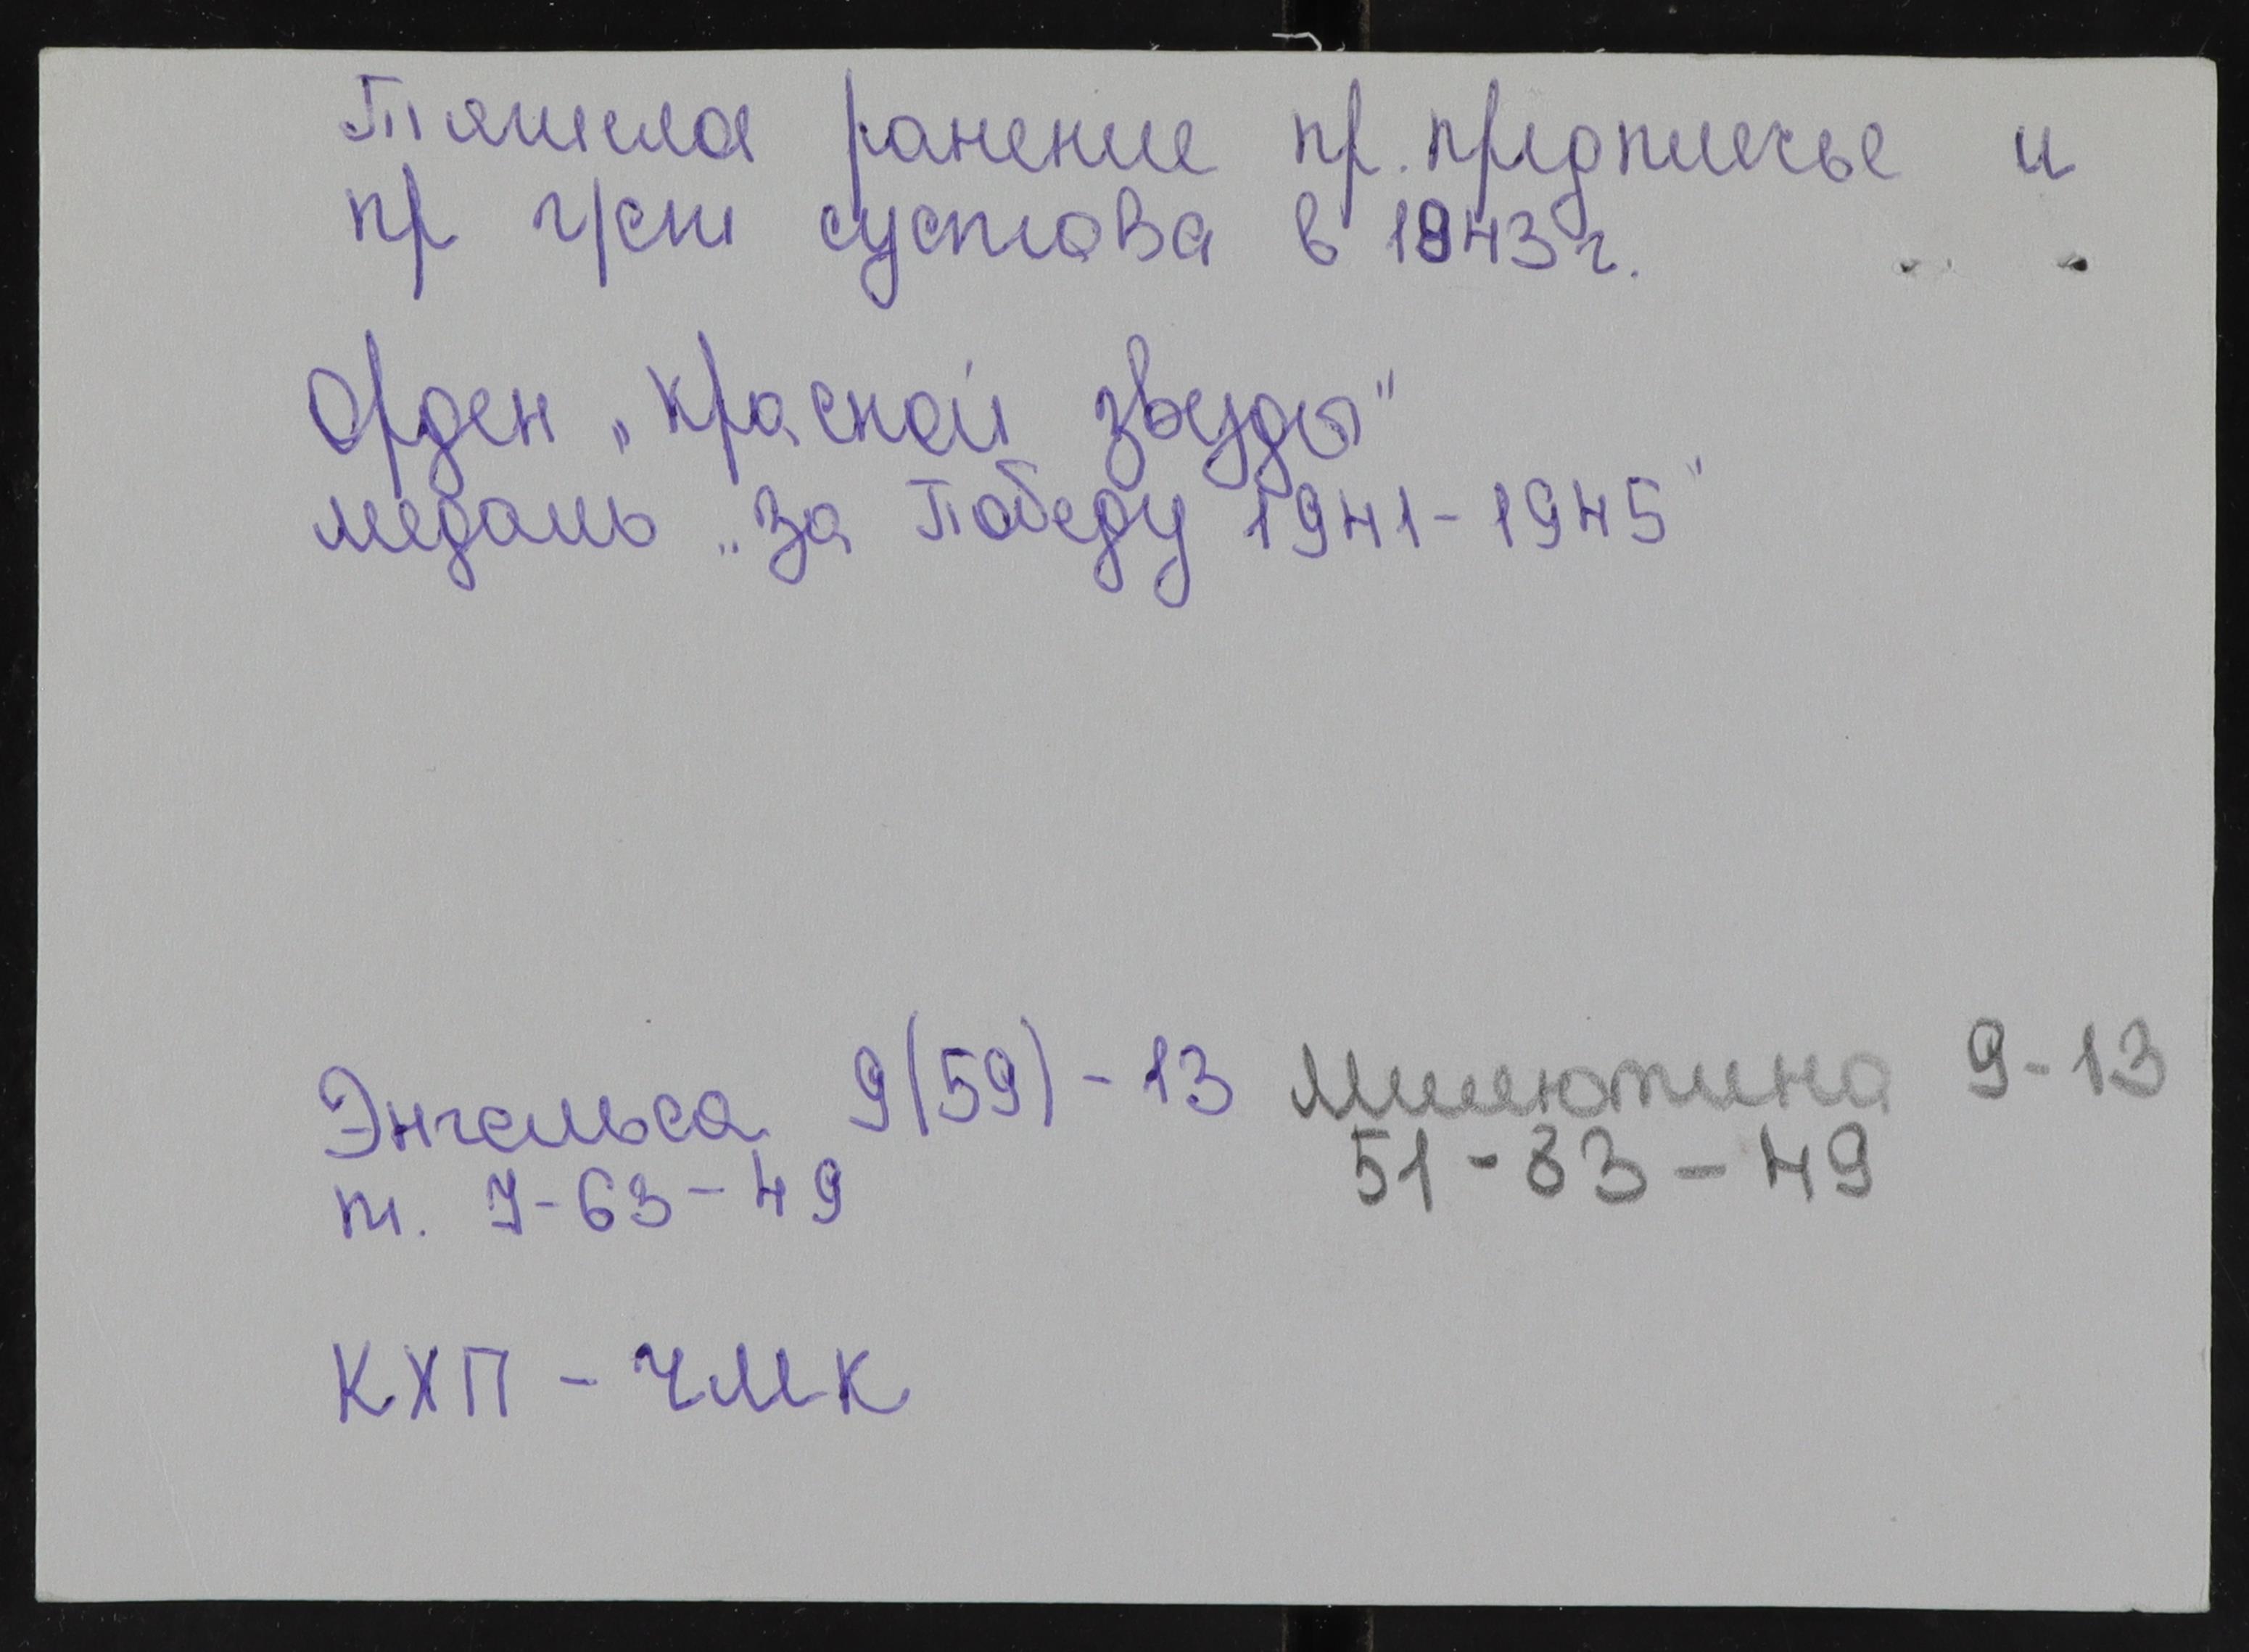 Тяжела ранение пр. предплечье и
пр сустова в 1943 г.
Орден „Красной звезды"
медаль „За Победу 1941-1945"
Энгельса 9(59)-13 Милютина 9-13
т. 7-63-49 51-83-49
КХП - ЧМК